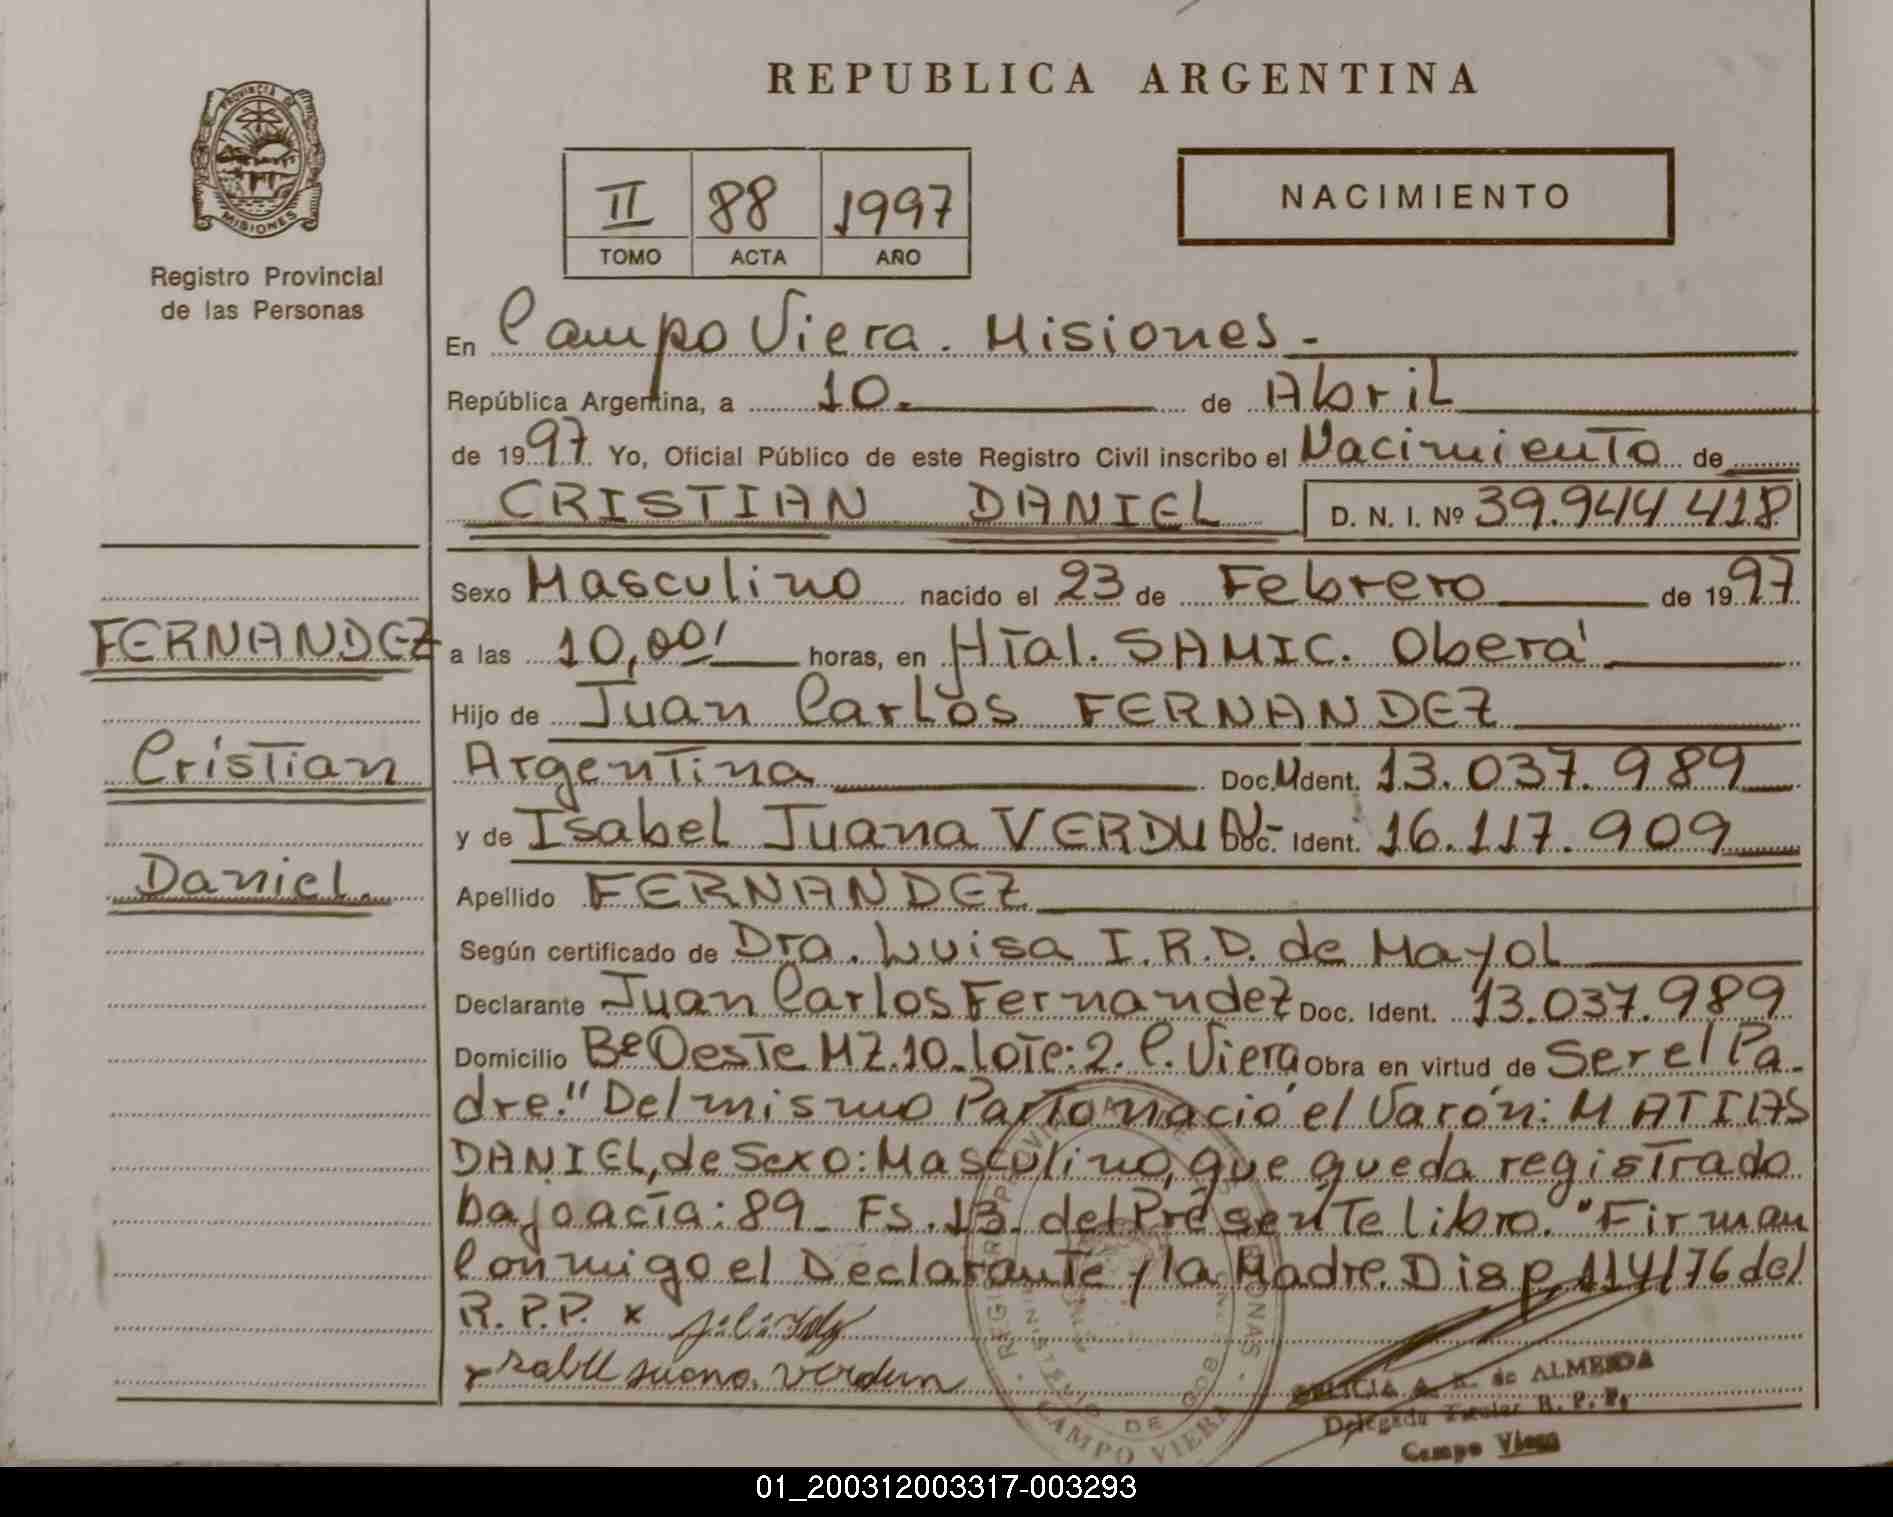 REPUBLICA ARGENTINA
PROVINCIA DE
MISIONES
Registro Provincial
de las Personas
II 88 1997
TOMO ACTA AÑO
NACIMIENTO
En Campo Viera. Misiones.-
República Argentina, a 10. de Abril
de 1997 Yo, Oficial Público de este Registro Civil inscribo el Nacimiento de
CRISTIAN DANIEL D. N. I. Nº 39.944 418
Sexo Masculino nacido el 23 de Febrero de 1997
FERNANDEZ
a las 10,00' horas, en HTal. SAMIC. Oberá
Hijo de Juan Carlos FERNANDEZ
Cristian
Argentina Doc. Ident. 13.037.989
y de Isabel Juana VERDUN- Doc. Ident. 16.117.909
Daniel.
Apellido FERNANDEZ
Según certificado de Dra. Luisa I.R.D. de Mayol
Declarante Juan Carlos Fernandez Doc. Ident. 13.037.989
Domicilio Bº Oeste MZ.10. Lote:2. C. Viera Obra en virtud de Ser el Pa-
dre." Del mismo Parto nació el Varón: MATIAS
DANIEL, de Sexo: Masculino, que queda registrado
bajo acta: 89- Fs. 13. del Presente libro." Firman
Conmigo el Declarante y la Madre. Disp. 114/76 del
R.P.P. x
x Isabel Juana Verdun
de ALMEIDA
Delegada Titular R. P. P.
Campo Viera
CAMPO VIERA
01_200312003317-003293